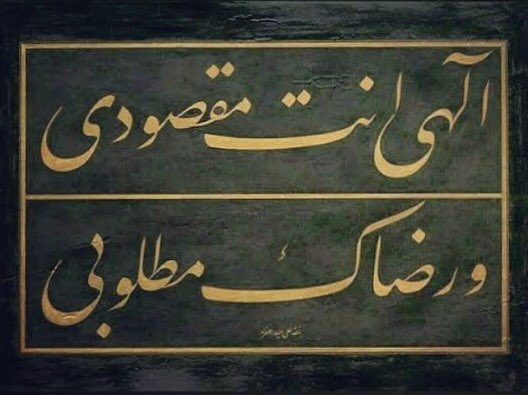 الٓهی انت مقصودی
ورضاك مطلوبی